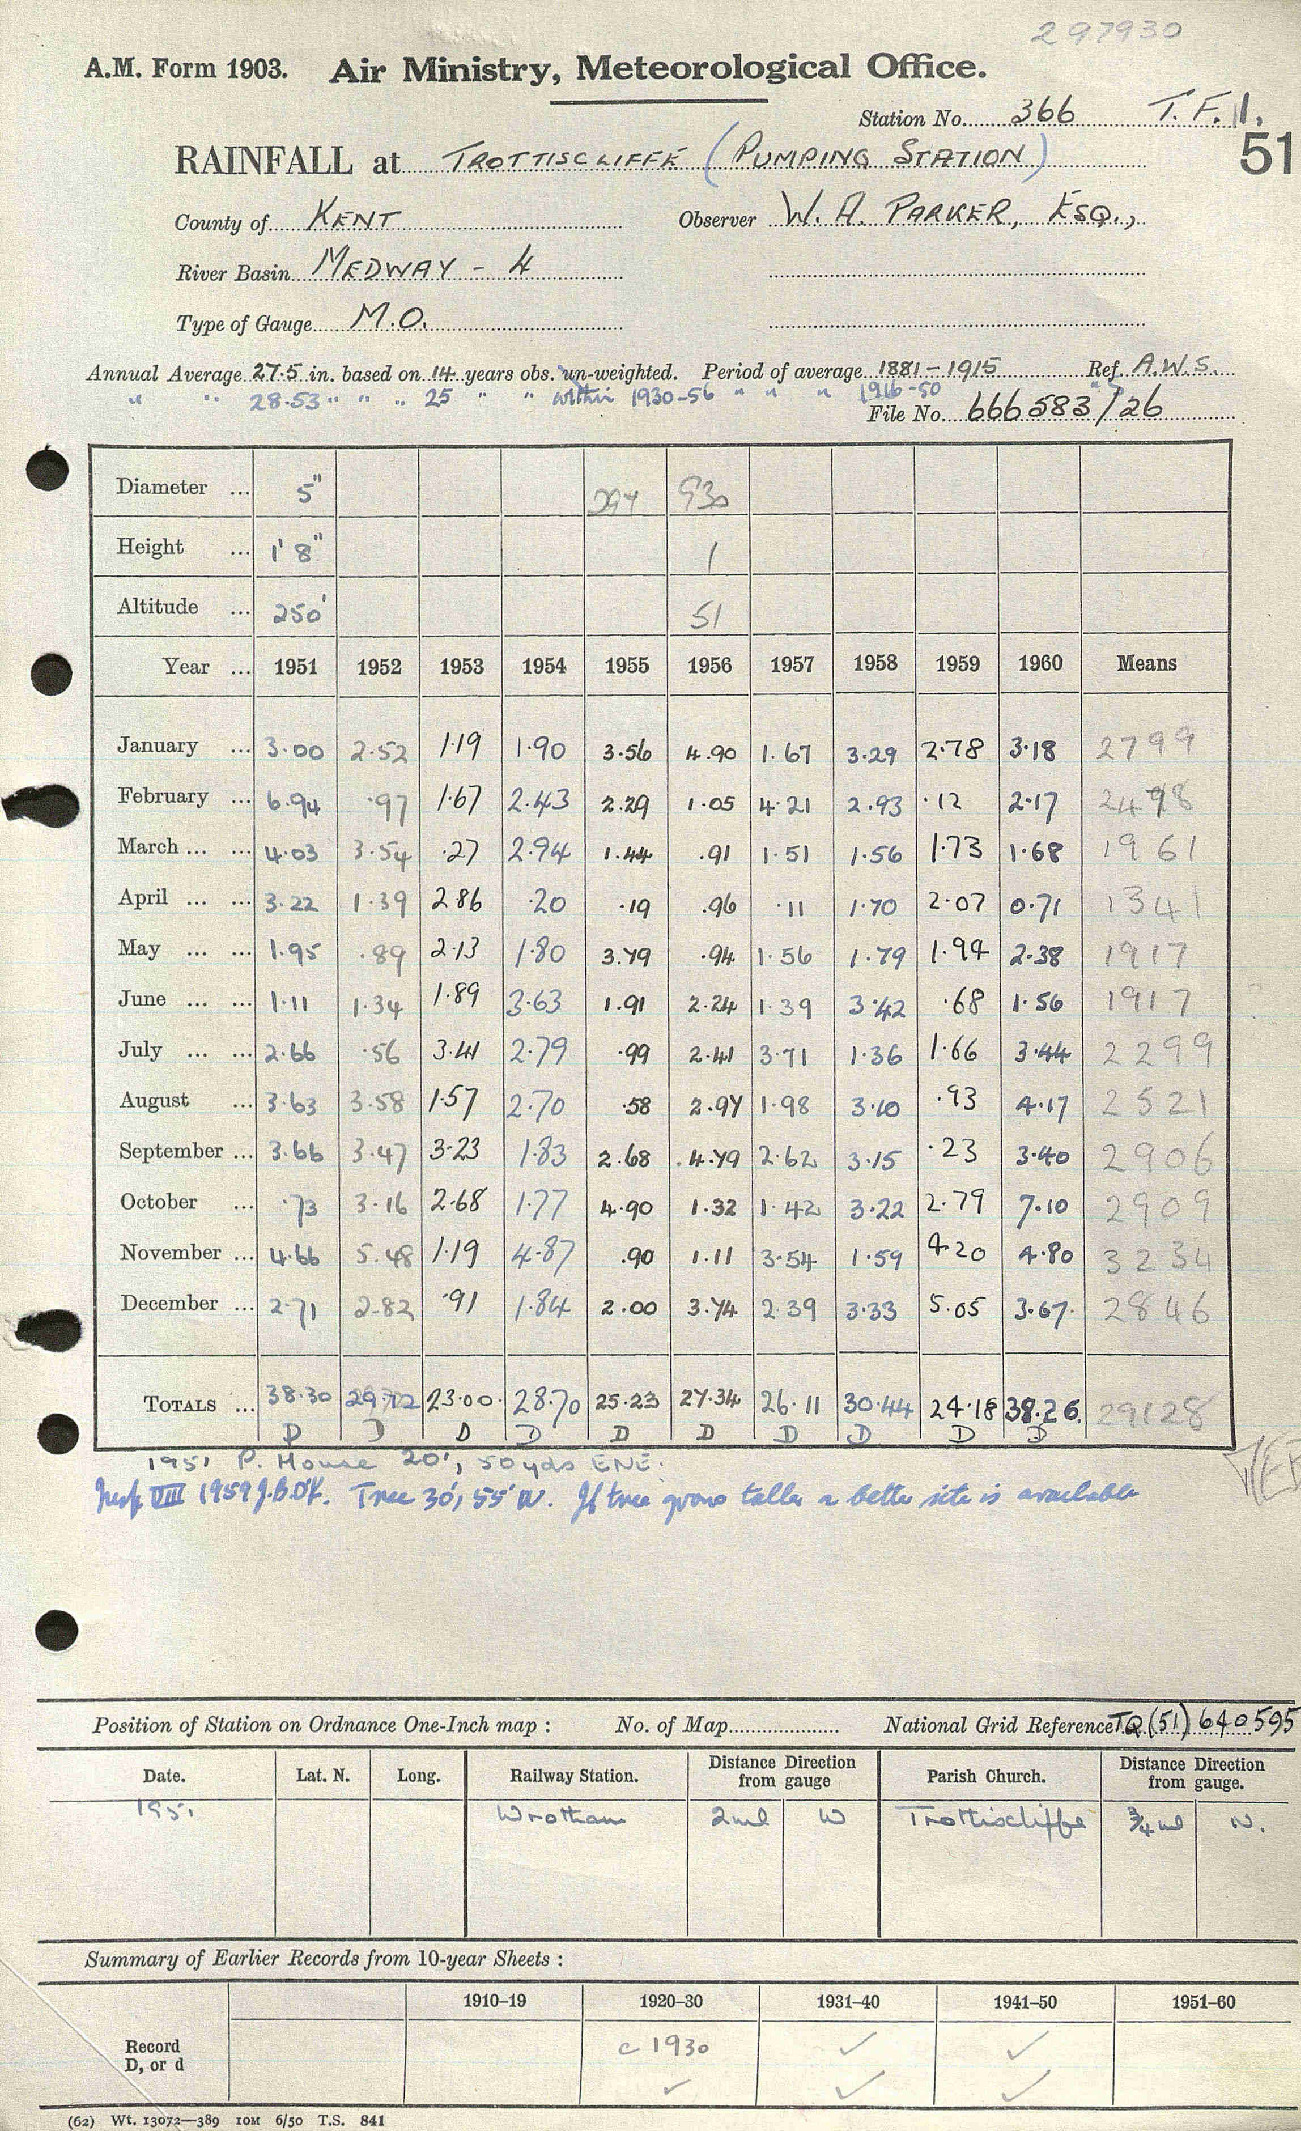 297930
A.M. Form 1903. Air Ministry, Meteorological Office.
Station No. 366 T.F.1.
RAINFALL at TROTTISCLIFFE (PUMPING STATION) 51
County of KENT Observer W. A. PARKER, ESQ.,
River Basin MEDWAY - 4
Type of Gauge M.O.
Annual Average 27.5 in. based on 14 years obs. un-weighted. Period of average 1881-1915 Ref. A.W.S.
" " 28.53 " " " 25 " " within 1930-56 " " " 1916-50 "
File No. 666583/26
Diameter ... 5" 297 930
Height ... 1' 8" 1
Altitude ... 250' 51
Year ... 1951 1952 1953 1954 1955 1956 1957 1958 1959 1960 Means
January ... 3.00 2.52 1.19 1.90 3.56 4.90 1.67 3.29 2.78 3.18 2799
February ... 6.94 .97 1.67 2.43 2.29 1.05 4.21 2.93 .12 2.17 2478
March ... ... 4.03 3.54 .27 2.94 1.44 .91 1.51 1.56 1.73 1.68 1961
April ... ... 3.22 1.39 2.86 .20 .19 .96 .11 1.70 2.07 0.71 1341
May ... ... 1.95 .89 2.13 1.80 3.79 .94 1.56 1.79 1.94 2.38 1917
June ... ... 1.11 1.34 1.89 3.63 1.91 2.24 1.39 3.42 .68 1.56 1917
July ... ... 2.66 .56 3.41 2.79 .99 2.41 3.71 1.36 1.66 3.44 2299
August ... 3.63 3.58 1.57 2.70 .58 2.97 1.98 3.10 .93 4.17 2521
September ... 3.66 3.47 3.23 1.83 2.68 4.79 2.62 3.15 .23 3.40 2906
October ... .73 3.16 2.68 1.77 4.90 1.32 1.42 3.22 2.79 7.10 2909
November ... 4.66 5.48 1.19 4.87 .90 1.11 3.54 1.59 4.20 4.80 3234
December ... 2.71 2.82 .91 1.84 2.00 3.74 2.39 3.33 5.05 3.67 2846
TOTALS ... 38.30 29.72 23.00 28.70 25.23 27.34 26.11 30.44 24.18 38.26 29128
D D D D D D D D D D
1951 P. House 20', 50yds ENE.
Insp VIII 1959 Tree 30', 55' W. If tree grows taller a better site is available
Position of Station on Ordnance One-Inch map : No. of Map National Grid Reference TQ(51) 640595
Date. Lat. N. Long. Railway Station. Distance Direction from gauge Parish Church. Distance Direction from gauge.
1951 Wrotham 2ml W Trottiscliffe 3/4 ml N.
Summary of Earlier Records from 10-year Sheets :
1910–19 1920–30 1931–40 1941–50 1951–60
Record c 1930 ✓ ✓
D, or d ✓ ✓ ✓
(62) Wt. 13072—389 10M 6/50 T.S. 841